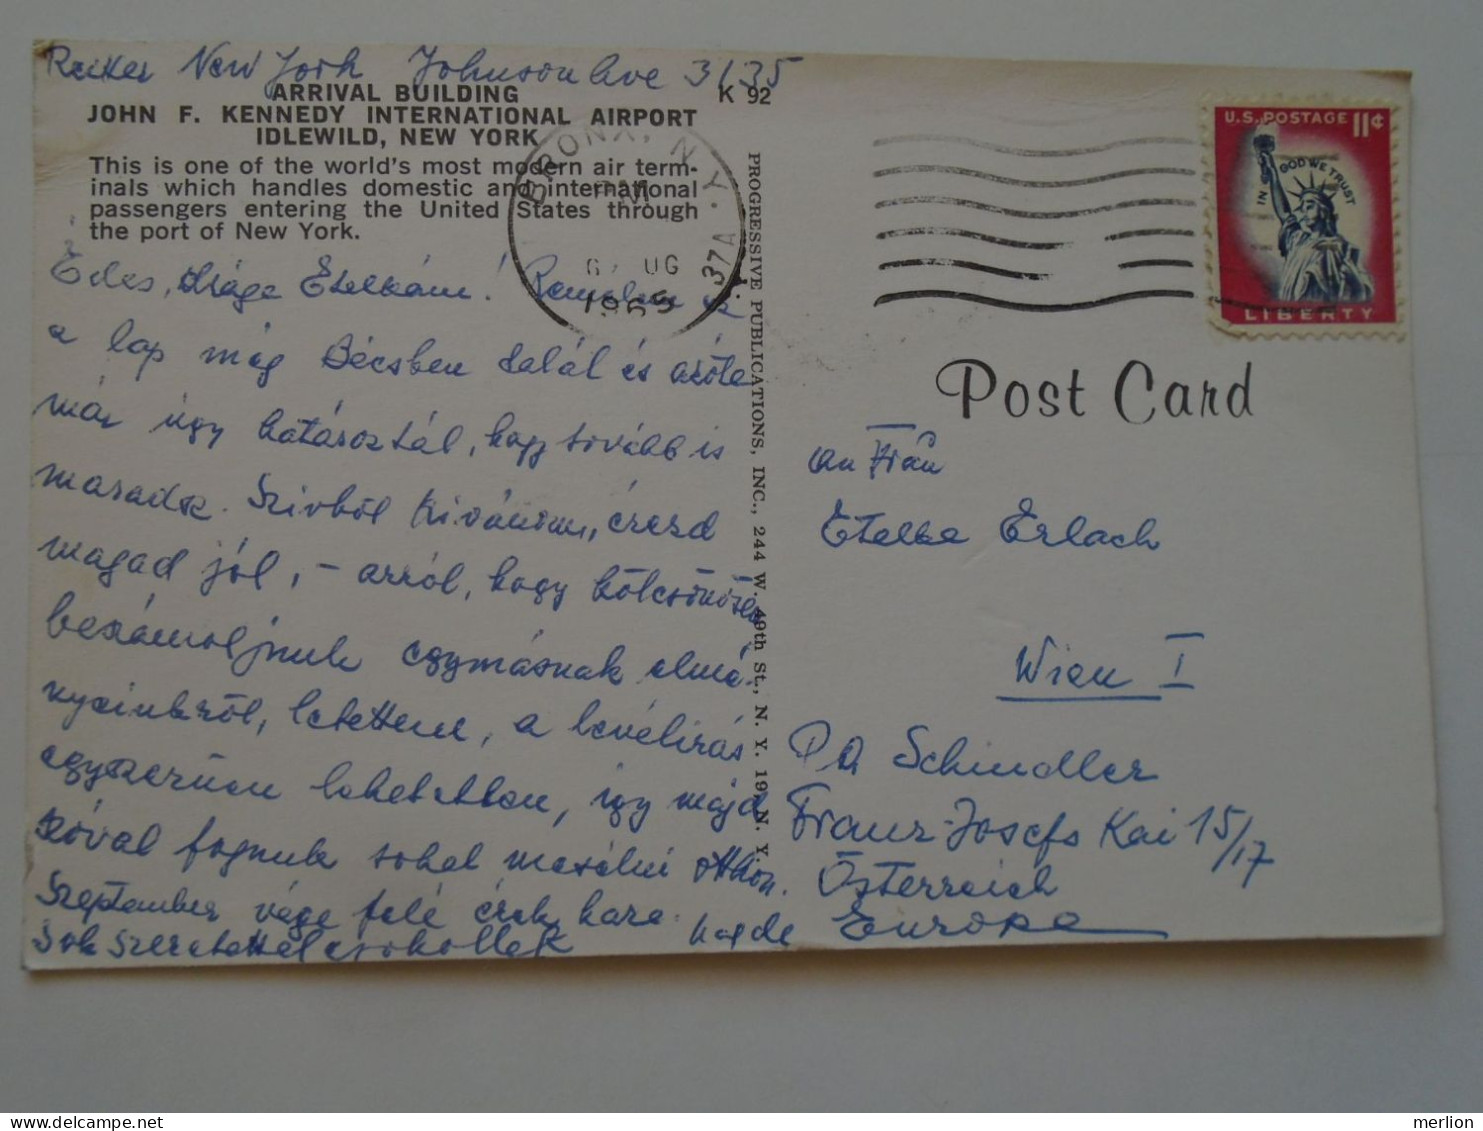 Reiter New York Johnson Ave 3135
ARRIVAL BUILDING
K 92
JOHN F. KENNEDY INTERNATIONAL AIRPORT
IDLEWILD, NEW YORK
This is one of the world's most modern air term-
inals which handles domestic and international
passengers entering the United States through
the port of New York.
Édes, drága Etelkám! Remélem ez
a lap még Bécsben talál és azóta
már úgy határoztál, hogy tovább is
maradsz. Szívből kívánom, érezd
magad jól, – arról, hogy kölcsönösen
beszámoljunk egymásnak élmé-
nyeinkről, letettem, a levélírás
egyszerűen lehetetlen, így majd
szóval fogunk sokat mesélni otthon.
Szeptember vége felé érek haza.
Sok szeretettel csókollek
BRONX, N.Y.
PM
UG
1965
37A
PROGRESSIVE PUBLICATIONS, INC., 244 W. 49th St., N. Y. 19, N. Y.
U.S. POSTAGE 11¢
IN GOD WE TRUST
LIBERTY
Post Card
An Frau
Etelka Erlach
Wien I
Schindler
Franz-Josefs Kai 15/17
Österreich
Europe
merlion